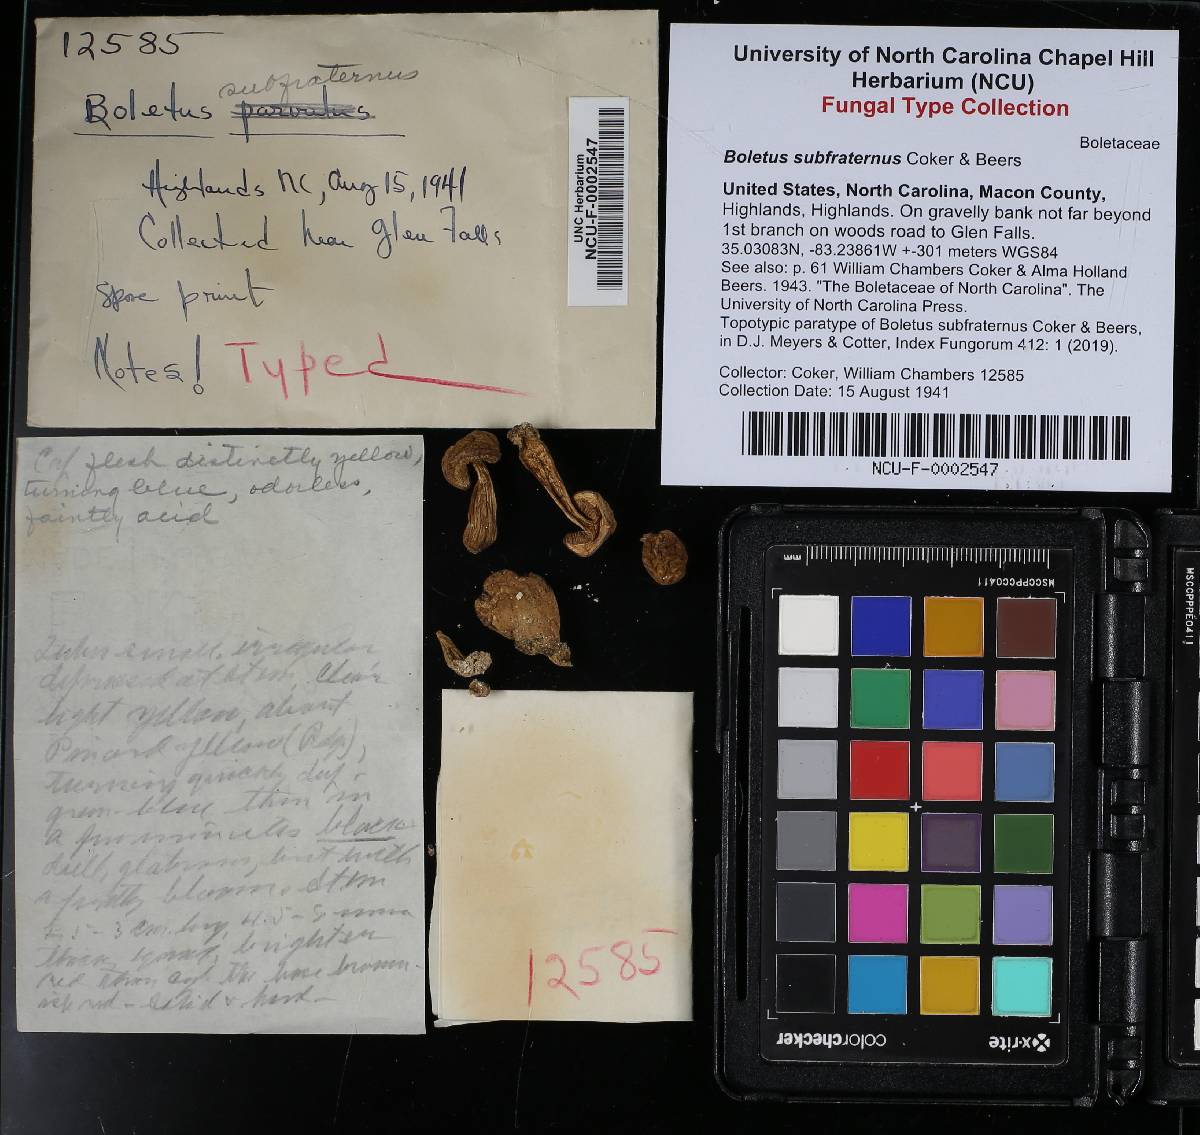 12585
subfraternus
Boletus parvulus
Highlands NC, Aug 15, 1941
Collected near Glen Falls
Spore print
Notes! Typed
UNC Herbarium
NCU-F-0002547
University of North Carolina Chapel Hill
Herbarium (NCU)
Fungal Type Collection
Boletaceae
Boletus subfraternus Coker & Beers
United States, North Carolina, Macon County,
Highlands, Highlands. On gravelly bank not far beyond
1st branch on woods road to Glen Falls.
35.03083N, -83.23861W +-301 meters WGS84
See also: p. 61 William Chambers Coker & Alma Holland
Beers. 1943. "The Boletaceae of North Carolina". The
University of North Carolina Press.
Topotypic paratype of Boletus subfraternus Coker & Beers,
in D.J. Meyers & Cotter, Index Fungorum 412: 1 (2019).
Collector: Coker, William Chambers 12585
Collection Date: 15 August 1941
NCU-F-0002547
Cap flesh distinctly yellow,
turning blue, odorless,
faintly acid
Tubes small, irregular
depressed at stem. Clear
light yellow, about
Pinard yellow (Rdg),
turning quickly
green-blue then in
a few minutes black
dull, glabrous, but with
a bloom. Stem
3 cm. long, 4.5-8 mm
thick, brighter
red than cap, the base brown-
ish red - solid & hard-
12585
mm
MSCCPPCC0411
MSCCPPPE0411
colorchecker
x-rite